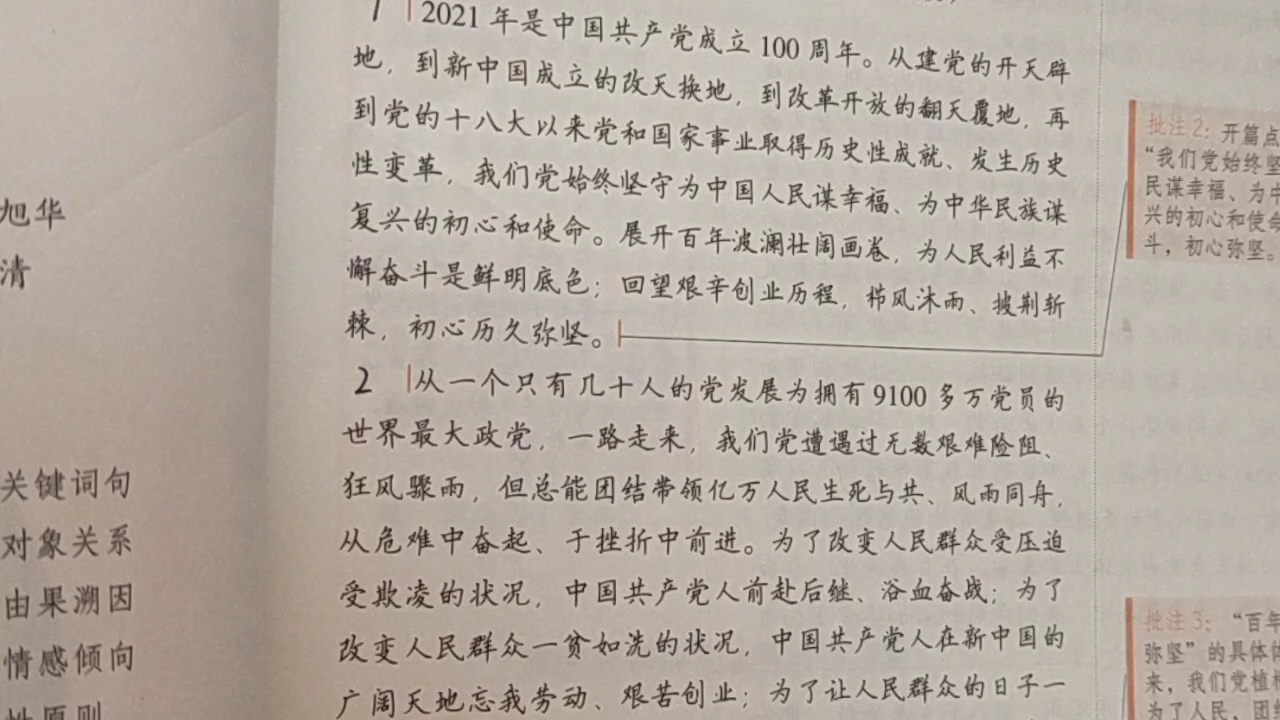 旭华
清
关键词句
对象关系
由果溯因
情感倾向
性原则
1 2021年是中国共产党成立100周年。从建党的开天辟
地，到新中国成立的改天换地，到改革开放的翻天覆地，再
到党的十八大以来党和国家事业取得历史性成就、发生历史
性变革，我们党始终坚守为中国人民谋幸福、为中华民族谋
复兴的初心和使命。展开百年波澜壮阔画卷，为人民利益不
懈奋斗是鲜明底色；回望艰辛创业历程，栉风沐雨、披荆斩
棘，初心历久弥坚。
2 从一个只有几十人的党发展为拥有9100多万党员的
世界最大政党，一路走来，我们党遭遇过无数艰难险阻、
狂风骤雨，但总能团结带领亿万人民生死与共、风雨同舟，
从危难中奋起、于挫折中前进。为了改变人民群众受压迫
受欺凌的状况，中国共产党人前赴后继、浴血奋战；为了
改变人民群众一贫如洗的状况，中国共产党人在新中国的
广阔天地忘我劳动、艰苦创业；为了让人民群众的日子一
批注2：开篇点
“我们党始终坚
民谋幸福、为中
兴的初心和使命
斗，初心弥坚。
批注3：“百年
弥坚”的具体体
来，我们党植根
为了人民、团结